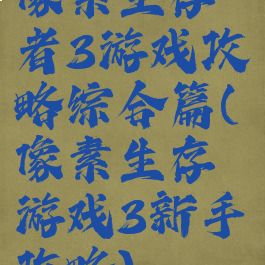 像素生存
者3游戏攻
略综合篇(
像素生存
游戏3新手
攻略)